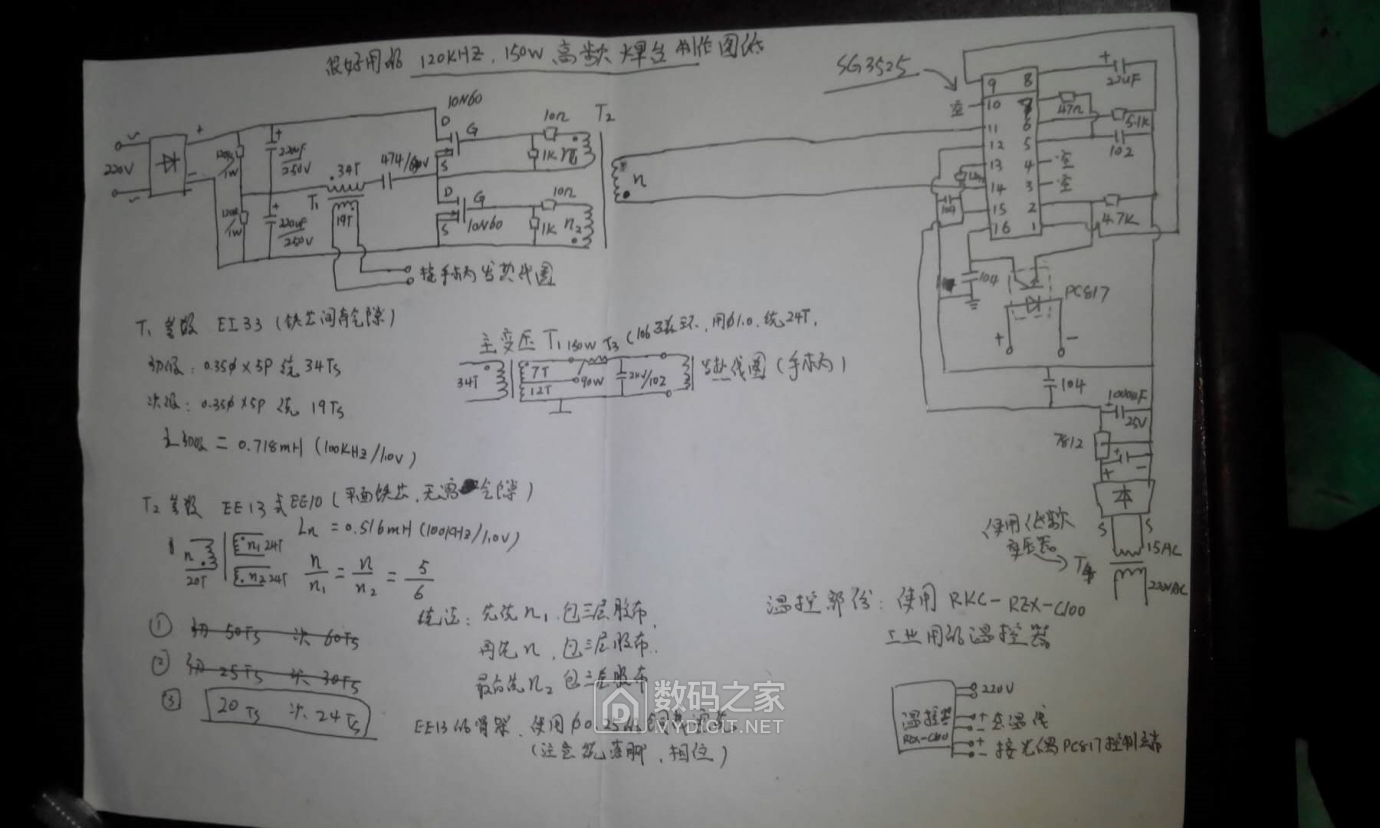 很好用的 120KHZ, 150W 高频焊台制作图纸
SG3525
220V
10N60
D
G
S
10Ω
1K
n1
T2
220uF/250V
220uF/250V
1W
1W
T1
34T
19T
474/
D
G
S
10N60
10Ω
1K
n2
n
接手柄发热线圈
9 8
空 10
11 6
12 5
13 4 空
14 3 空
15 2
16 1
22uF
47Ω
5.1K
102
4.7K
104
104
PC817
+ -
104
1000uF
25V
7812
+ -
S S
15AC
220VAC
T4
使用低频变压器
T1参数 EI33 (铁芯间有气隙)
初级: 0.35φ×5P 绕 34Ts
次级: 0.35φ×5P 绕 19Ts
L初级 = 0.718mH (100KHz/1.0V)
主变压 T1 150W T3 (106磁环, 用φ1.0, 绕24T,
34T
7T
12T
90W
2KV/102
发热线圈 (手柄)
T2参数 EE13或EE10 (平面铁芯, 无需气隙)
Ln = 0.516mH (100KHz/1.0V)
n
20T
n1 24T
n2 24T
n/n1 = n/n2 = 5/6
① 初 50Ts 次 60Ts
② 初 25Ts 次 30Ts
③ 20Ts 次 24Ts
绕法: 先绕n1, 包三层胶布,
再绕n, 包三层胶布.
最后绕n2 包三层胶布
EE13的骨架, 使用φ0.25的
(注意绕落脚, 相位)
温控部份: 使用 RKC-REX-C100
工业用的温控器
温控器
REX-C100
220V
+ 至温线
-
+
- 接光偶PC817控制主板
数码之家
MYDIGIT.NET